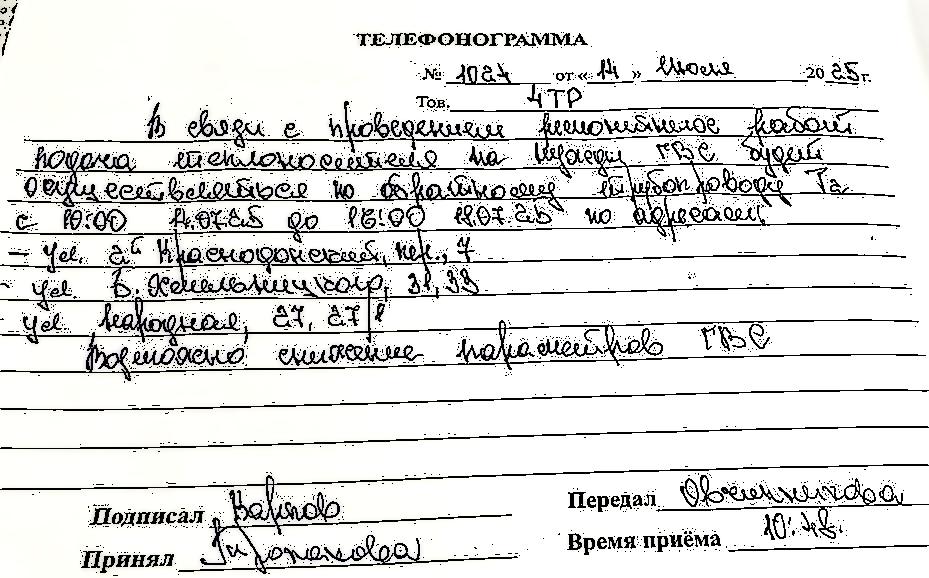 ТЕЛЕФОНОГРАММА
№ 1024 от «14» Июля 2025г.
Тов. 4 ТР
В связи с проведением ремонтных работ
подача теплоносителя на нужды ГВС будет
осуществляться по обратному трубопроводу Т2
с 10:00 до 16:00 по адресам:
- ул. 2й Краснодонский, пер., 7
- ул. Б. Хмельницкого, 31, 33
ул. Народная, 27, 27/1
Возможно снижение параметров ГВС
Подписал
Передал Овчинникова
Принял
Время приёма 10:48.